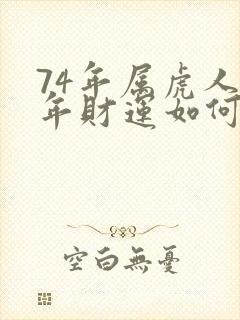 74年属虎人
年财运如何
空白無憂